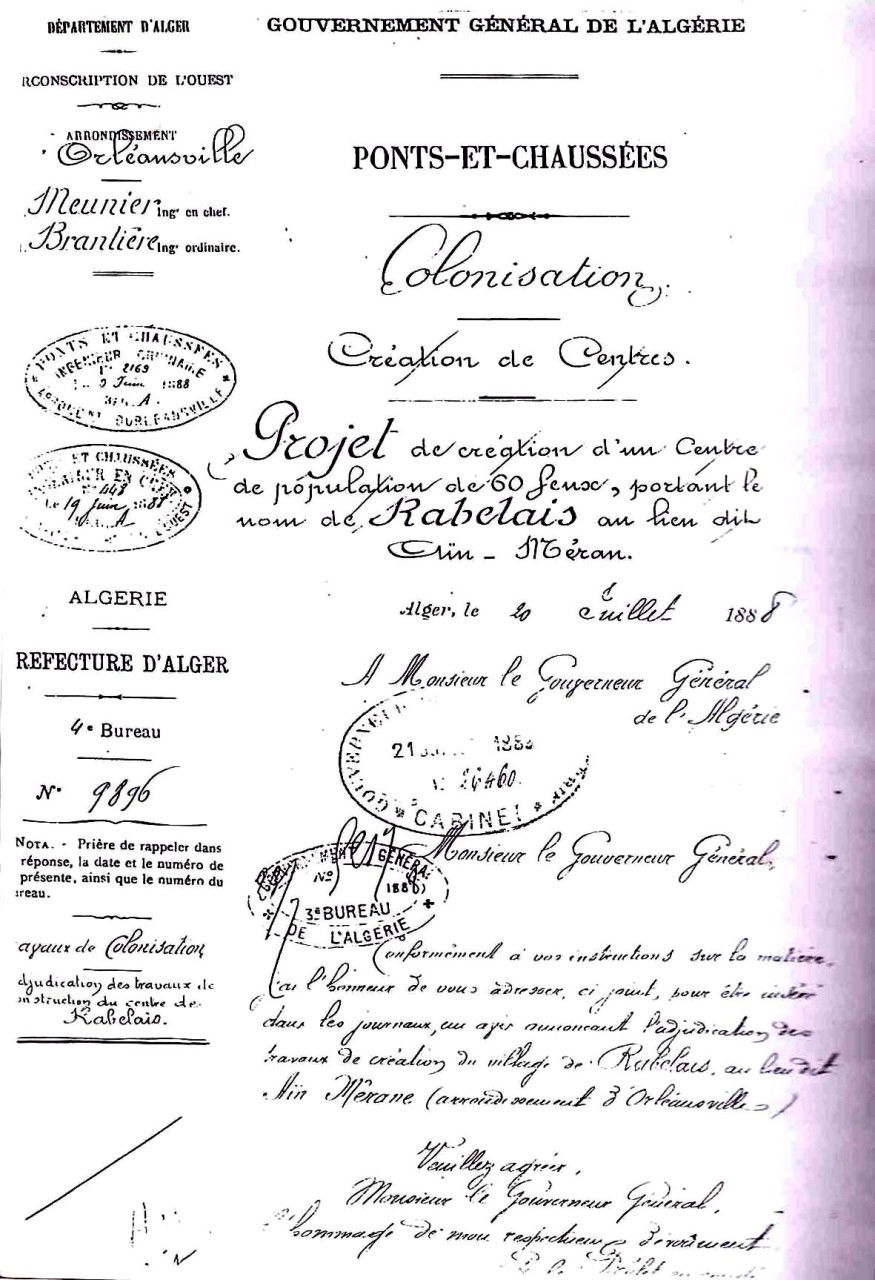 DÉPARTEMENT D'ALGER
RCONSCRIPTION DE L'OUEST
ARRONDISSEMENT
Orléansville
Meunier Ingr en chef.
Branlière Ingr ordinaire.
GOUVERNEMENT GÉNÉRAL DE L'ALGÉRIE
PONTS-ET-CHAUSSÉES
Colonisation.
Création de Centres.
Projet de création d'un Centre
de population de 60 feux, portant le
nom de Rabelais au lieu dit
Aïn - Méran.
PONTS ET CHAUSSÉES
INGÉNIEUR ORDINAIRE
N° 2169
9 Juin 1888
D'ORLÉANSVILLE
ET CHAUSSÉES
INGÉNIEUR EN CHEF
N° 448
Le 19 Juin 1888
OUEST
ALGERIE
REFECTURE D'ALGER
4e Bureau
N° 9896
NOTA. - Prière de rappeler dans
réponse, la date et le numéro de
présente, ainsi que le numéro du
reau.
avaux de Colonisation
djudication des travaux de
nstruction du centre de
Rabelais.
Alger, le 20 Juillet 1888
A Monsieur le Gouverneur Général
de l'Algérie
21 188
CABINET
GÉNÉRAL
N°
188
3e BUREAU
DE L'ALGÉRIE
Monsieur le Gouverneur Général,
Conformément à vos instructions sur la matière,
j'ai l'honneur de vous adresser, ci joint, pour être inséré
dans les journaux, un avis annonçant l'adjudication des
travaux de création du village de Rabelais, au lieu dit
Aïn Mérane (arrondissement d'Orléansville)
Veuillez agréer,
Monsieur le Gouverneur Général,
l'hommage de mon respectueux dévouement